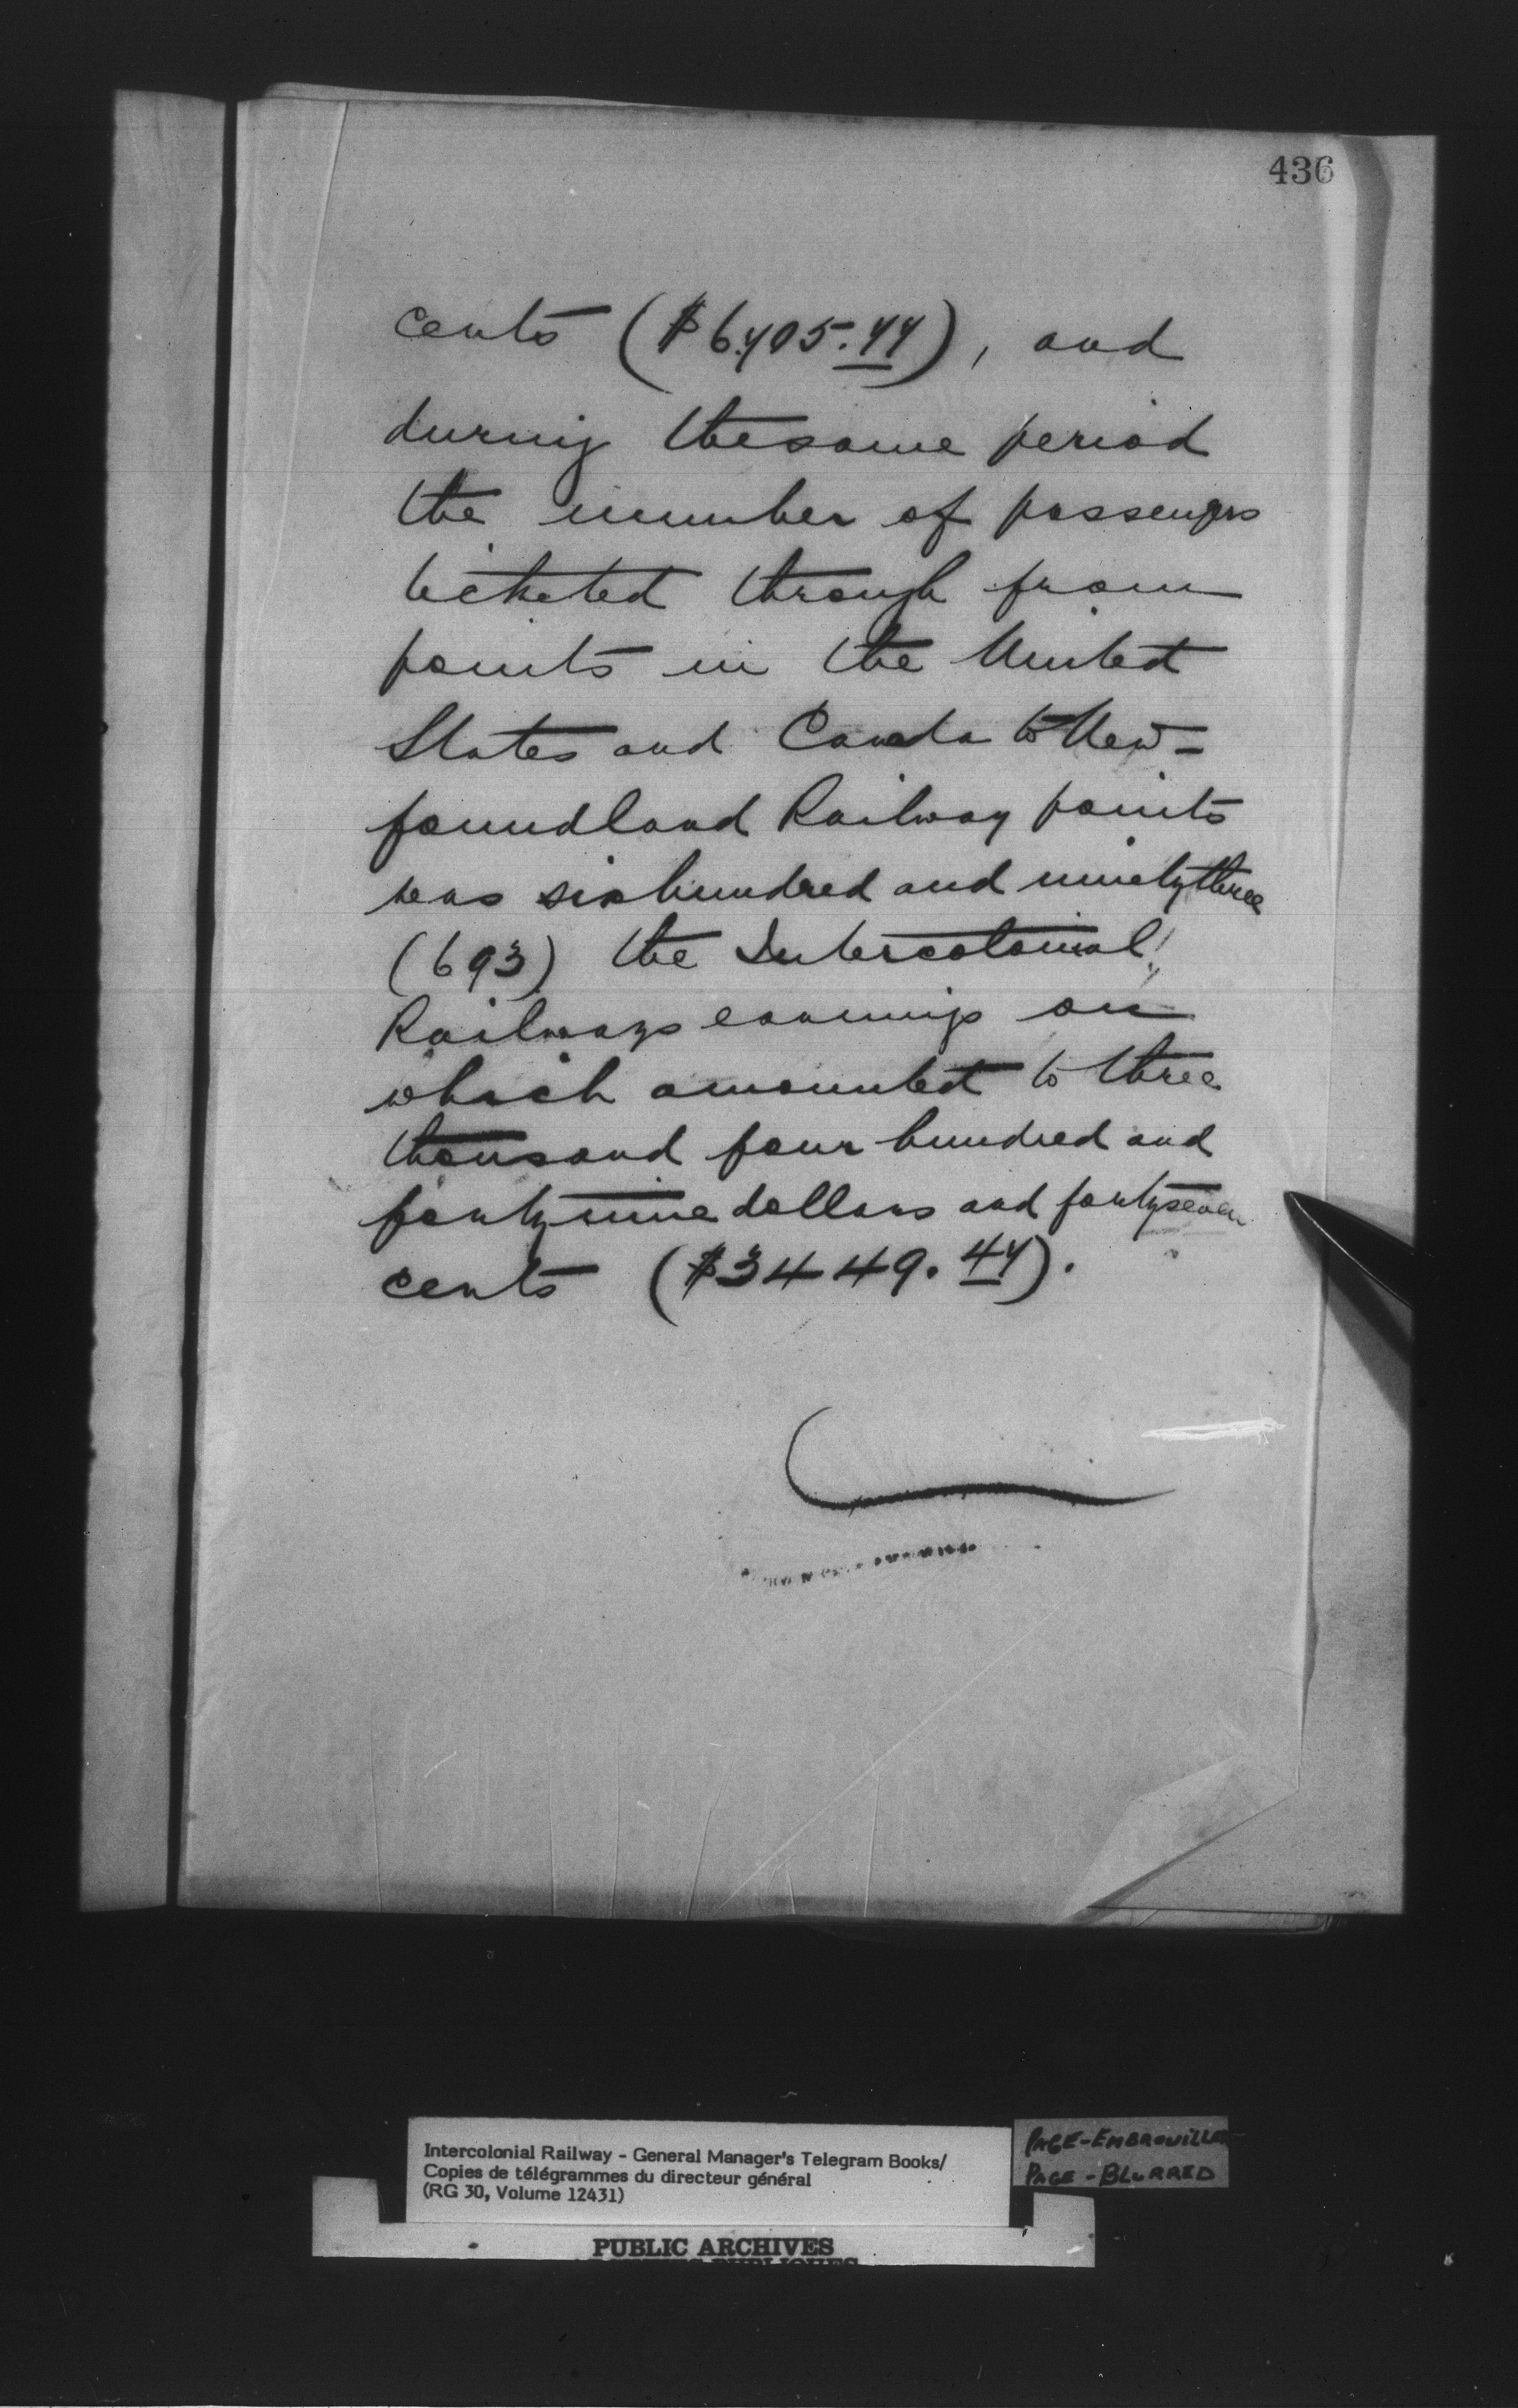 436
cents ($6705.77), and
during the same period
the number of passengers
ticketed through from
points in the United
States and Canada to New-
foundland Railway points
was six hundred and ninetythree
(693) the Intercolonial
Railways earnings on
which amounted to three
thousand four hundred and
forty nine dollars and fortyseven
cents ($3449.47).
Intercolonial Railway - General Manager's Telegram Books/
Copies de télégrammes du directeur général
(RG 30, Volume 12431)
PAGE-EMBROUILLÉE
PAGE-BLURRED
PUBLIC ARCHIVES